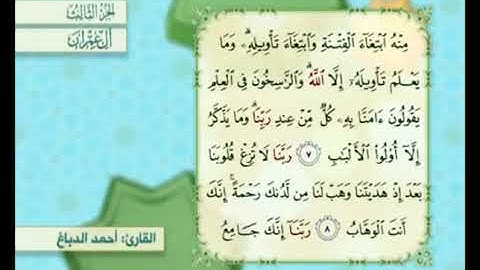 الجزء الثالث
آل عمران
مِنْهُ ابْتِغَاءَ الْفِتْنَةِ وَابْتِغَاءَ تَأْوِيلِهِ ۗ وَمَا
يَعْلَمُ تَأْوِيلَهُ إِلَّا اللَّهُ ۗ وَالرَّاسِخُونَ فِي الْعِلْمِ
يَقُولُونَ ءَامَنَّا بِهِ كُلٌّ مِّنْ عِندِ رَبِّنَا ۗ وَمَا يَذَّكَّرُ
إِلَّا أُولُوا الْأَلْبَٰبِ ٧ رَبَّنَا لَا تُزِغْ قُلُوبَنَا
بَعْدَ إِذْ هَدَيْتَنَا وَهَبْ لَنَا مِن لَّدُنكَ رَحْمَةً ۚ إِنَّكَ
أَنتَ الْوَهَّابُ ٨ رَبَّنَا إِنَّكَ جَامِعُ
القارئ: أحمد الدباغ